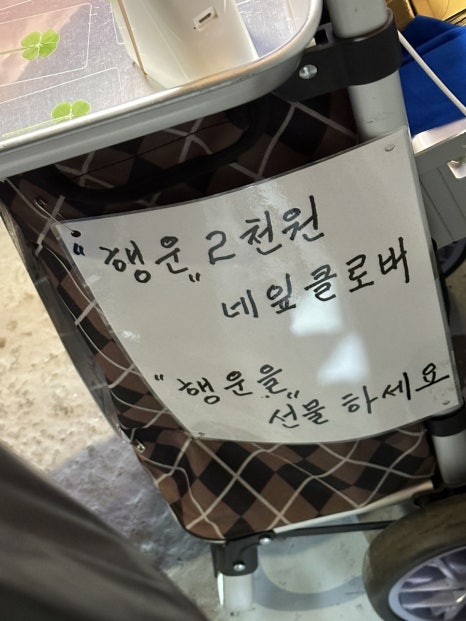 "행운" 2천원
네잎클로버
"행운을"
선물 하세요